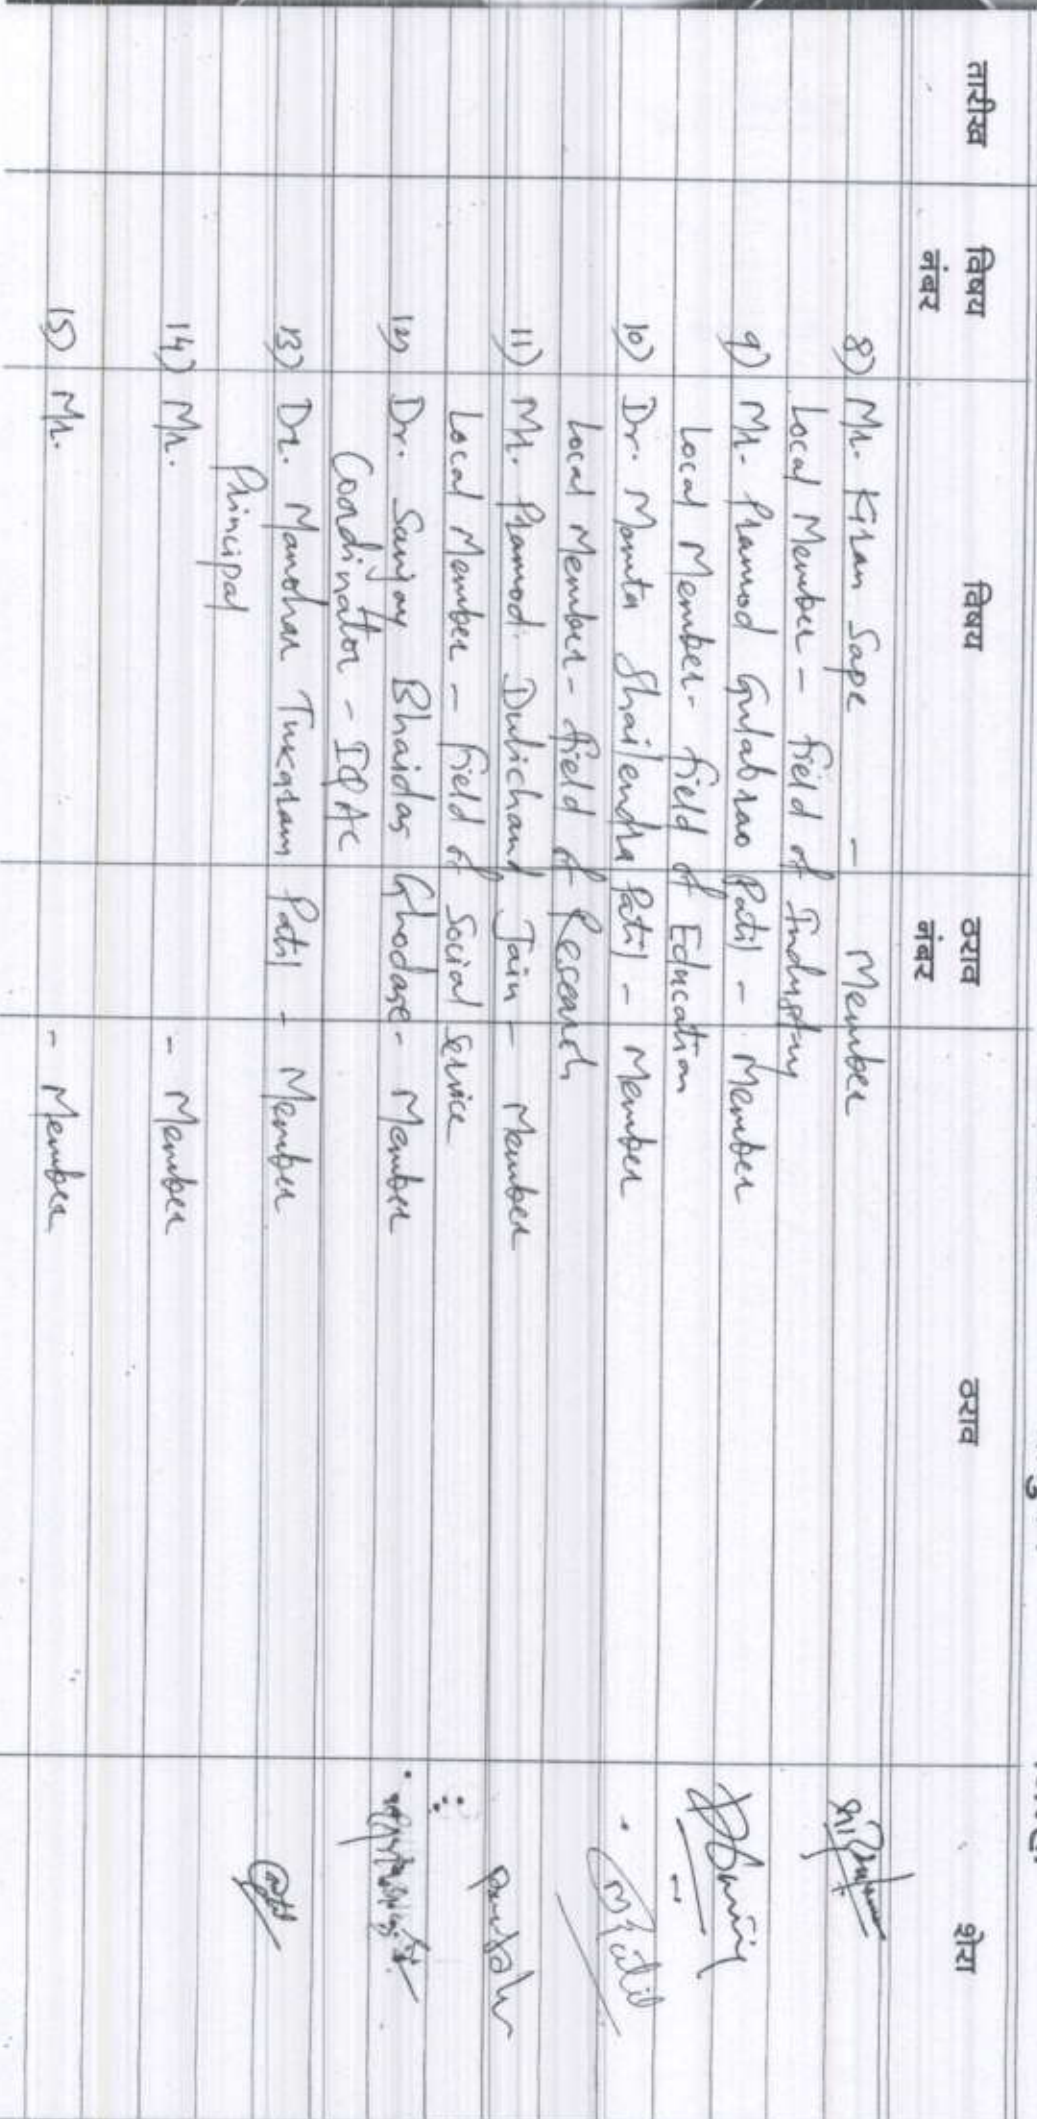 तारीख विषय नंबर विषय ठराव नंबर ठराव शेरा
8) Mr. Kiran Sape - Member
Local Member - field of Industry
9) Mr. Pramod Gulabrao Patil - Member
Local Member - field of Education
10) Dr. Mamta Shailendra Patil - Member
MPatil
Local Member - field of Research
11) Mr. Pramod Dulichand Jain - Member
Local Member - field of Social Service
12) Dr. Sanjay Bhaidas Ghodase - Member
Coordinator - IQAC
13) Dr. Manohar Tukaram Patil - Member
Principal
14) Mr. - Member
15) Mr. - Member